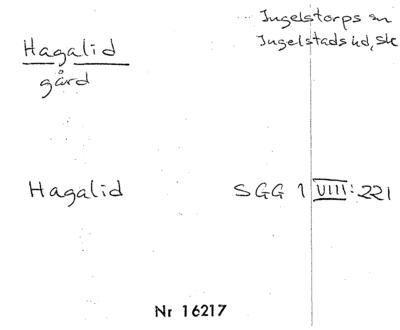 Hagalid
gård
Ingelstorps sn
Ingelstads hd, Sk
Hagalid
SGG 1 VIII: 221
Nr 16217